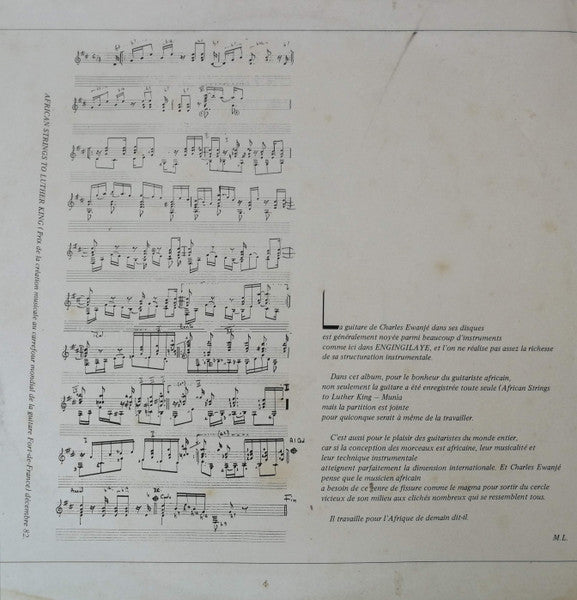 AFRICAN STRINGS TO LUTHER KING (Prix de la création musicale au carrefour mondial de la guitare Fort-de-France) décembre 82.
La guitare de Charles Ewanjé dans ses disques
est généralement noyée parmi beaucoup d'instruments
comme ici dans ENGINGILAYE, et l'on ne réalise pas assez la richesse
de sa structuration instrumentale.
Dans cet album, pour le bonheur du guitariste africain,
non seulement la guitare a été enregistrée toute seule (African Strings
to Luther King – Munia
mais la partition est jointe
pour quiconque serait à même de la travailler.
C'est aussi pour le plaisir des guitaristes du monde entier,
car si la conception des morceaux est africaine, leur musicalité et
leur technique instrumentale
atteignent parfaitement la dimension internationale. Et Charles Ewanjé
pense que le musicien africain
a besoin de ce genre de fissure comme le magma pour sortir du cercle
vicieux de son milieu aux clichés nombreux qui se ressemblent tous.
Il travaille pour l'Afrique de demain dit-il.
M.L.